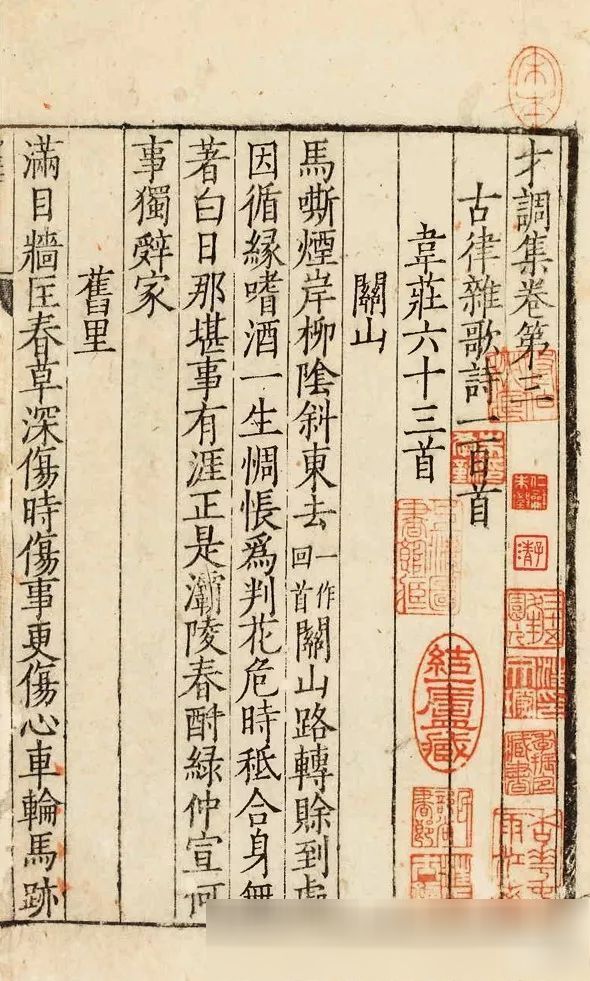 才調集卷第三
古律雜歌詩一百首
韋莊六十三首
關山
馬嘶煙岸柳陰斜東去一作回首關山路轉賒到處
因循緣嗜酒一生惆悵為判花危時秪合身無
著白日那堪事有涯正是灞陵春酎綠仲宣何
事獨辭家
舊里
滿目牆匡春草深傷時傷事更傷心車輪馬跡
結廬藏